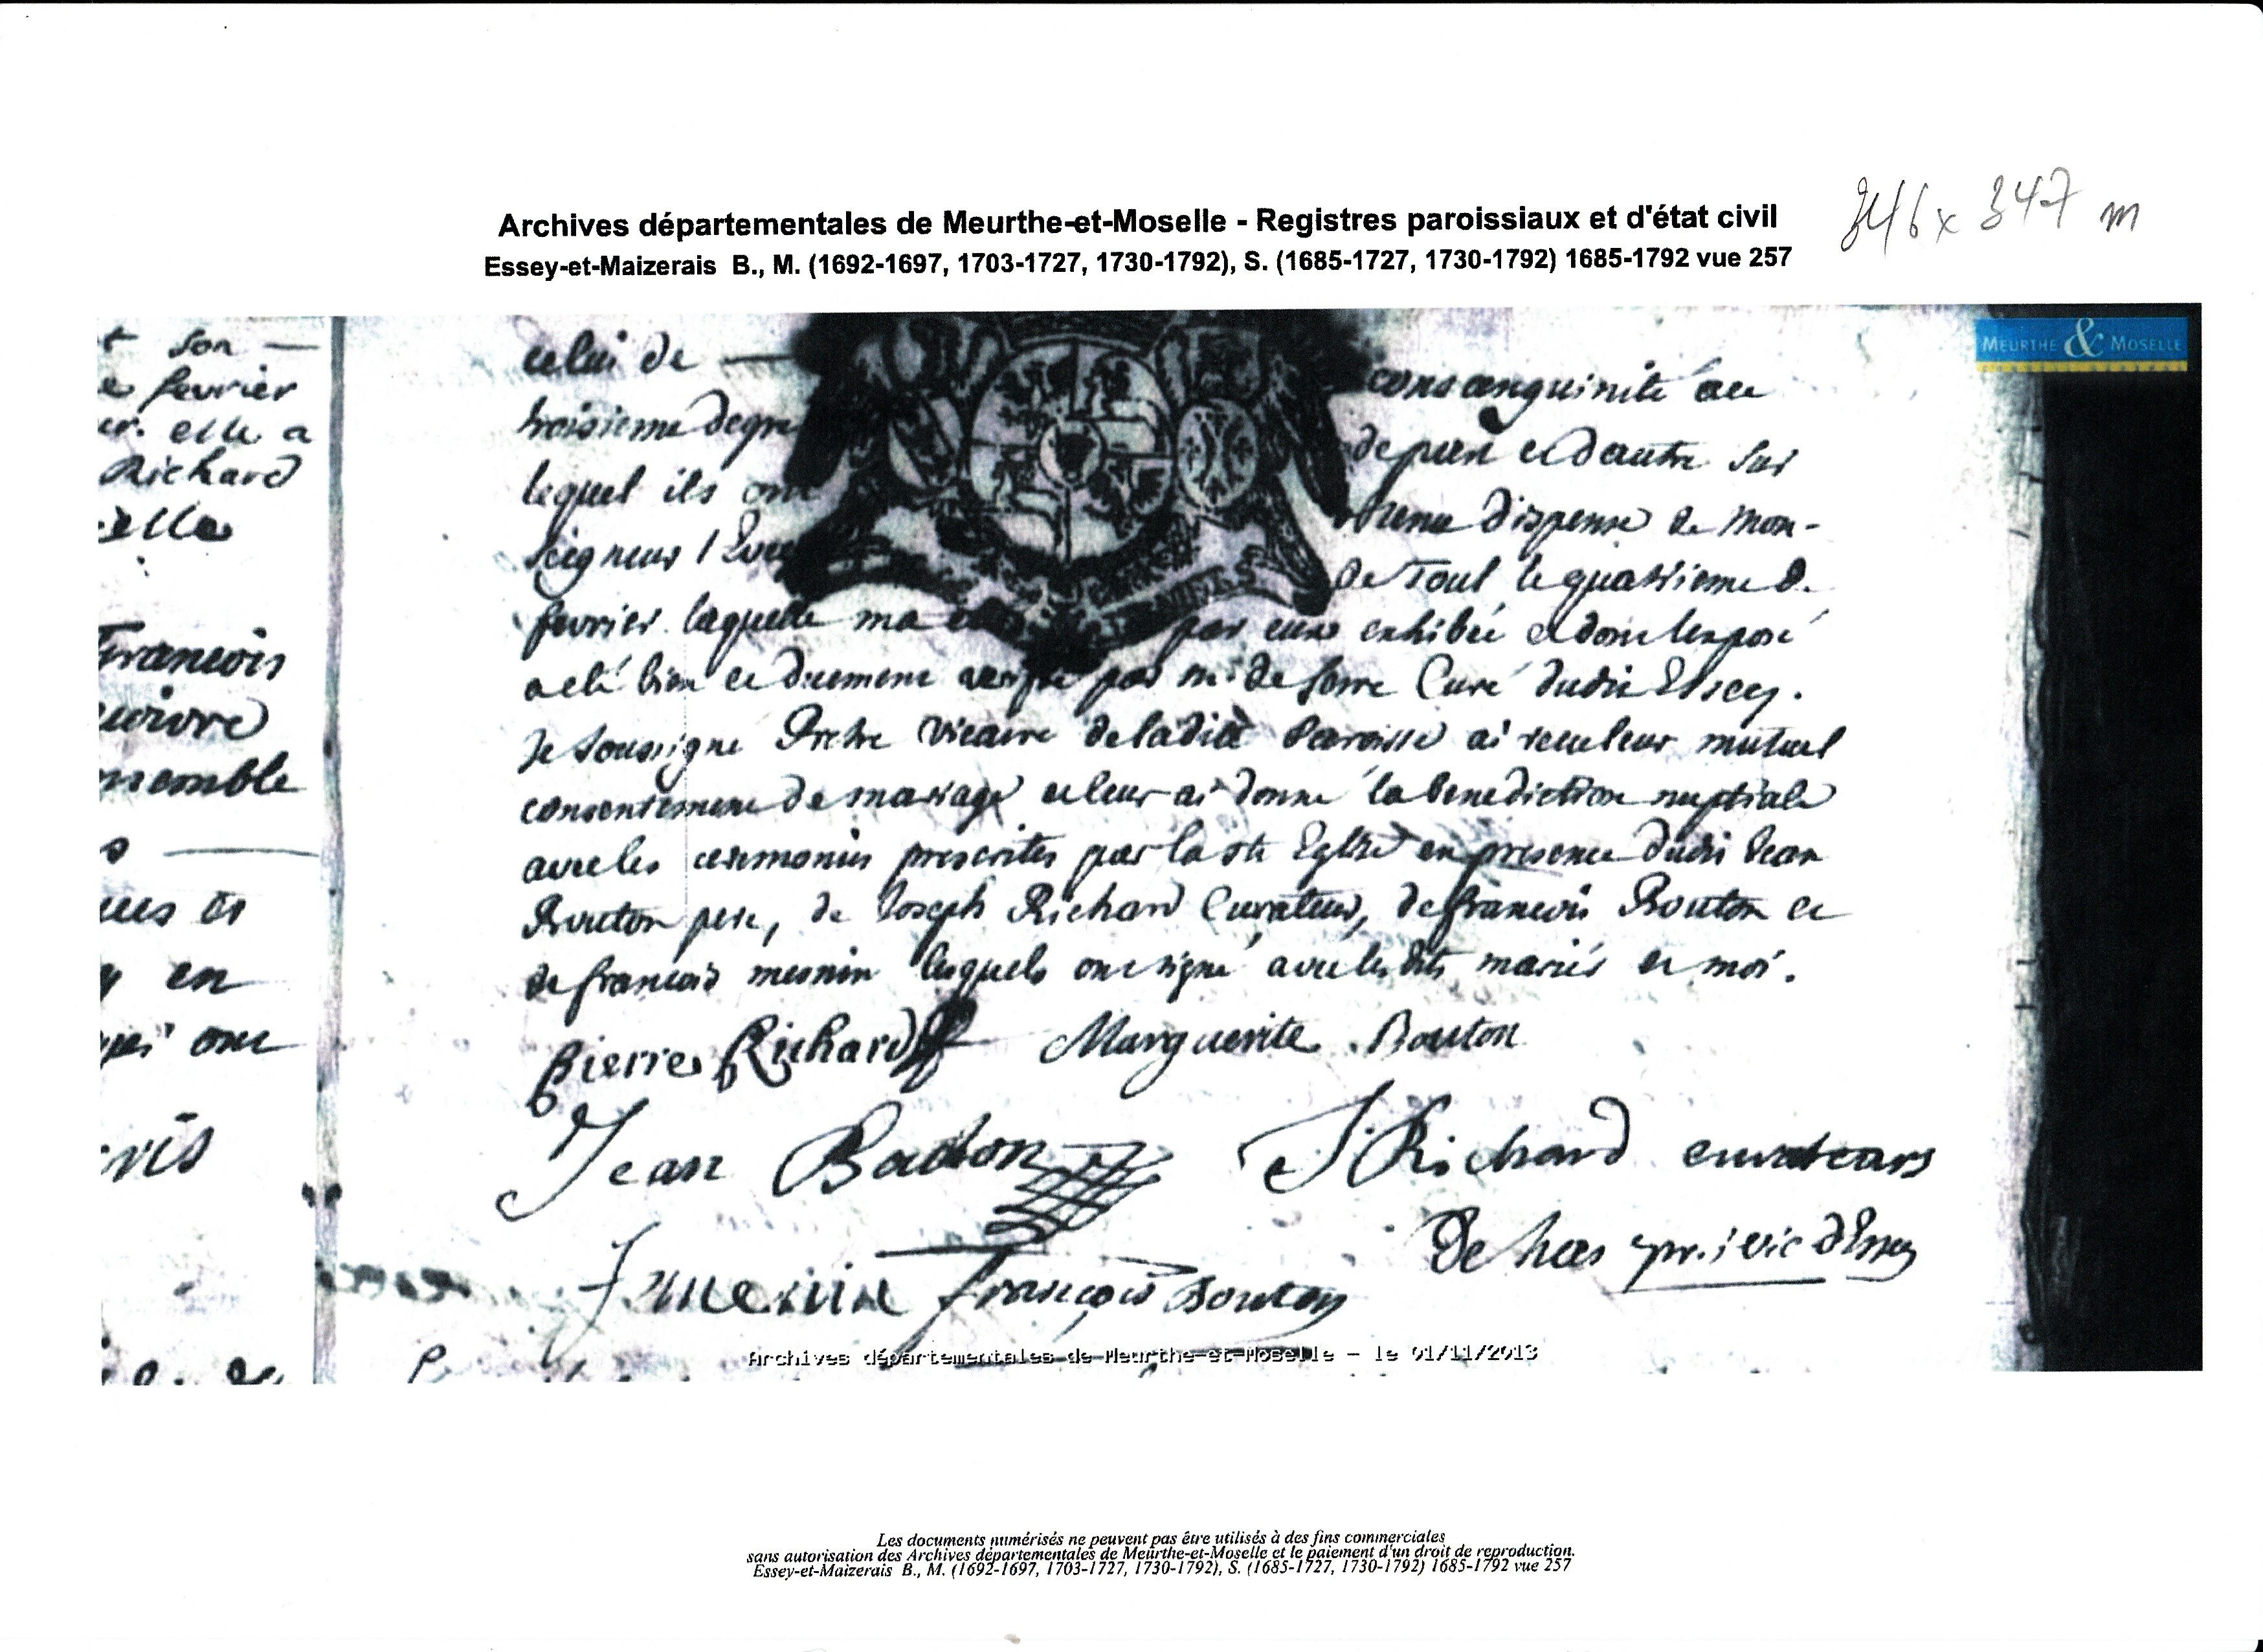 346 x 347 m
Archives départementales de Meurthe-et-Moselle - Registres paroissiaux et d'état civil
Essey-et-Maizerais B., M. (1692-1697, 1703-1727, 1730-1792), S. (1685-1727, 1730-1792) 1685-1792 vue 257
MEURTHE & MOSELLE
t son
e fevrier
er. elle a
Richard
elle
francois
uivre
nsemble
s
ues et
y en
qui ont
celui de consanguinité au
troisieme degre de part et dautre sur
lequel ils ont obtenu dispense de mon-
seigneur l'Eveq de Toul le quatrieme de
fevrier laquelle ma par eux exhibée et dont lexposé
a eté bien et duement verifié par mr de forre Curé dudit Essey.
Je soussigne Pretre vicaire de ladite Paroisse ai recu leur mutuel
consentement de mariage et leur ai donné la benediction nuptiale
avec les ceremonies prescrites par la ste Eglise en presence dudit Jean
Bouton pere, de Joseph Richard Curateur, de francois Bouton et
de francois mesnin lesquels ont signé avec lesdits mariés et moi.
Pierre Richard Marguerite Bouton
Jean Bouton J Richard curateurs
De has pr. vic dEssey
f menin françois Bouton
Archives départementales de Meurthe-et-Moselle - le 01/11/2013
Les documents numérisés ne peuvent pas être utilisés à des fins commerciales
sans autorisation des Archives départementales de Meurthe-et-Moselle et le paiement d'un droit de reproduction.
Essey-et-Maizerais B., M. (1692-1697, 1703-1727, 1730-1792), S. (1685-1727, 1730-1792) 1685-1792 vue 257